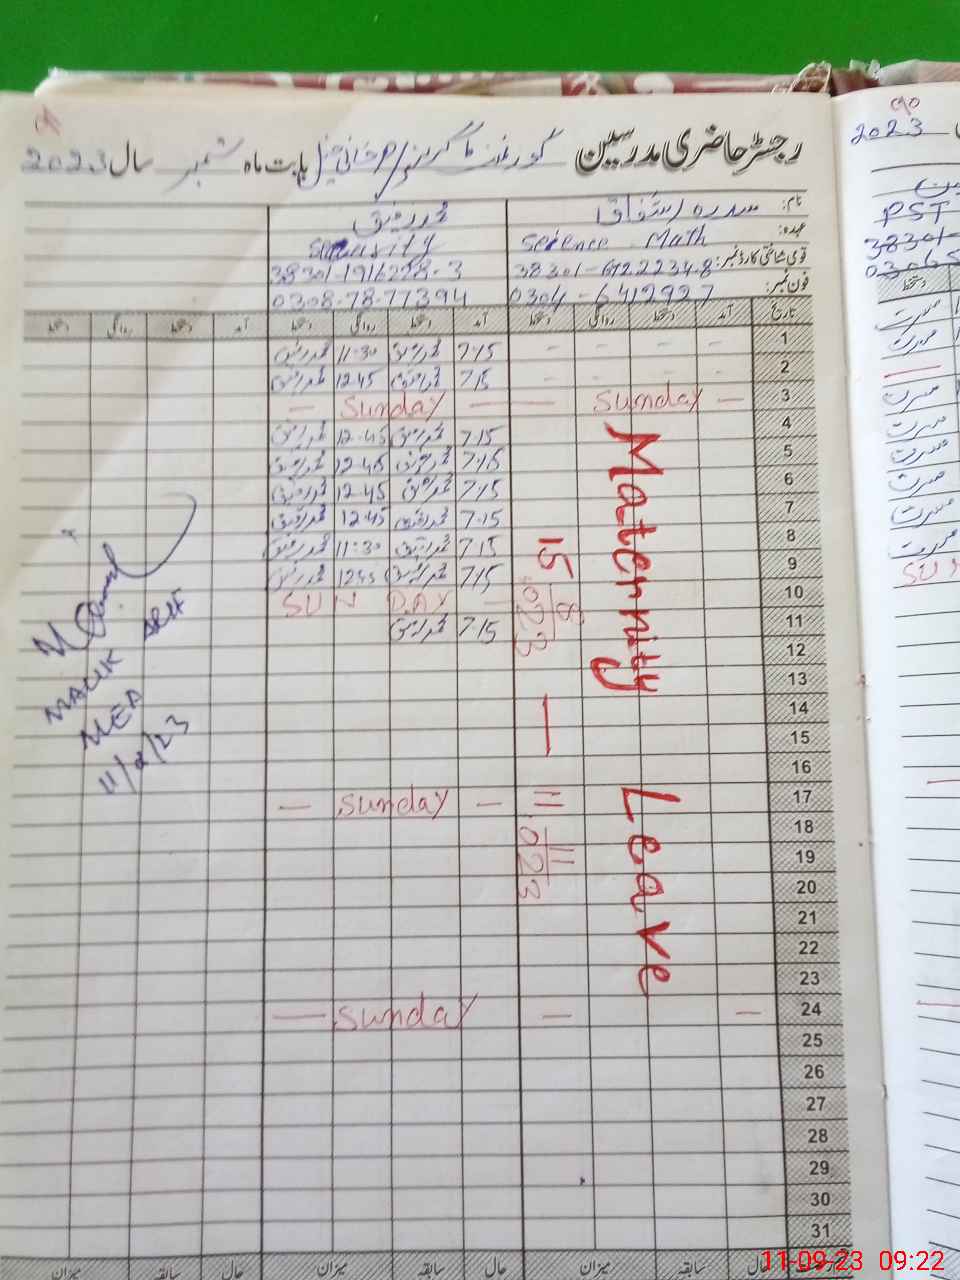 رجسٹر حاضری مدرسین گورنمنٹ بابت ماہ ستمبر سال 2023
نام: سدرہ اشفاق محمد رفیق
عہدہ: Science Math Security
قومی شناختی کارڈ نمبر: 38301-6722234-8 38301-1916228-3
فون نمبر: 0304-6412927 0308-78-77394
تاریخ آمد دستخط روانگی دستخط آمد دستخط روانگی دستخط آمد دستخط روانگی دستخط
1 - - - - 7-15 محمد رفیق 11-30 محمد رفیق
2 - - - - 7-15 محمد رفیق 12-45 محمد رفیق
3 — Sunday — — Sunday —
4 7-15 محمد رفیق 12-45 محمد رفیق
5 7-15 محمد رفیق 12-45 محمد رفیق
6 7-15 محمد رفیق 12-45 محمد رفیق
7 7-15 محمد رفیق 12-45 محمد رفیق
8 7-15 محمد رفیق 11-30 محمد رفیق
9 7-15 محمد رفیق 12-45 محمد رفیق
10 SUN DAY
11 7-15 محمد رفیق
12
13
14
15
16
17 — Sunday —
18
19
20
21
22
23
24 — — — Sunday
25
26
27
28
29
30
31
Maternity Leave
15/8/023 — 11/11/023
MALIK
MEA
حال سابقہ میزان حال سابقہ میزان حال سابقہ میزان
2023
PST
38301-
11-09-23 09:22